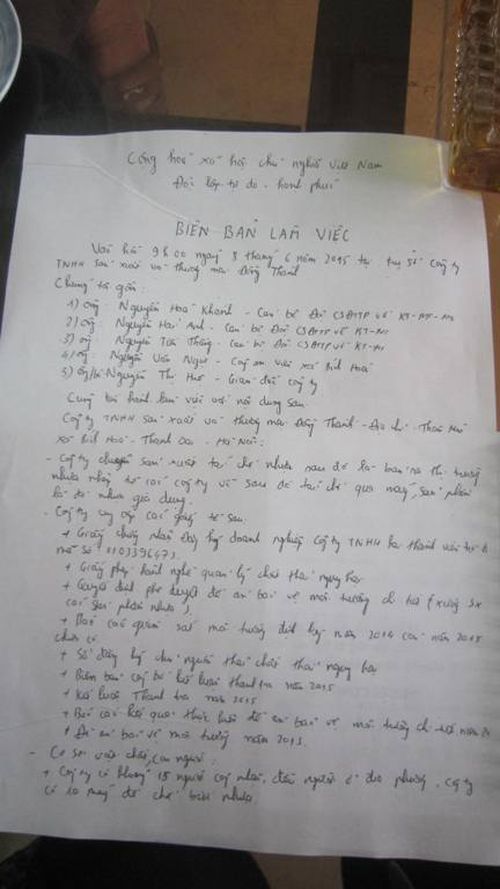 Cộng hoà xã hội chủ nghĩa Việt Nam
Độc lập tự do - hạnh phúc
BIÊN BẢN LÀM VIỆC
Vào hồi 9h00 ngày 8 tháng 6 năm 2015 tại trụ sở Công ty
TNHH sản xuất và thương mại Đông Thành
Chúng tôi gồm:
1) Ông Nguyễn Hoà Khánh - Cán bộ Đội CSĐTTP về KT-MT
2) Ông Nguyễn Hải Anh - Cán bộ Đội CSĐTTP về KT-MT
3) Ông Nguyễn Tất Thắng - Cán bộ Đội CSĐTTP về KT-MT
4) Ông Nguyễn Văn - Công an viên xã Bích Hoà
5) Ông/bà Nguyễn Thị - Giám đốc công ty
Cùng tiến hành làm việc với nội dung sau
Công ty TNHH sản xuất và thương mại Đông Thành - Địa chỉ: Thôn
xã Bích Hoà - Thanh Oai - Hà Nội:
- Công ty chuyên sản xuất tái chế nhựa sau đó là bán ra thị trường
nhựa từ các công ty về sau đó tái chế qua máy, sản phẩm
là nhựa gia dụng.
- Công ty cung cấp các giấy tờ sau
+ Giấy chứng nhận đăng ký doanh nghiệp Công ty TNHH hai thành viên trở
mã số 0103396473.
+ Giấy phép hành nghề quản lý chất thải nguy hại
+ Quyết định phê duyệt đề án bảo vệ môi trường chi tiết (xưởng sx
các sản phẩm nhựa)
+ Báo cáo quan sát môi trường định kỳ năm 2014 còn năm 2015
chưa có
+ Sổ đăng ký chủ nguồn thải chất thải nguy hại
+ Biên bản công bố kết luận thanh tra năm 2015
+ Kết luận Thanh tra năm 2015
+ Báo cáo kết quả thực hiện đề án bảo vệ môi trường chi tiết năm
+ Đề án bảo vệ môi trường năm 2013.
- Cơ sở vật chất, con người:
+ Công ty có khoảng 15 người công nhân, đều người ở địa phương, công ty
có 10 máy để chế biến nhựa